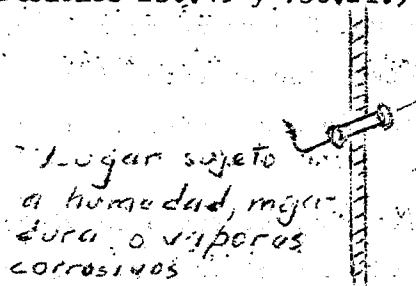 Lugar sujeto
a humedad, moja-
dura o vapores
corrosivos